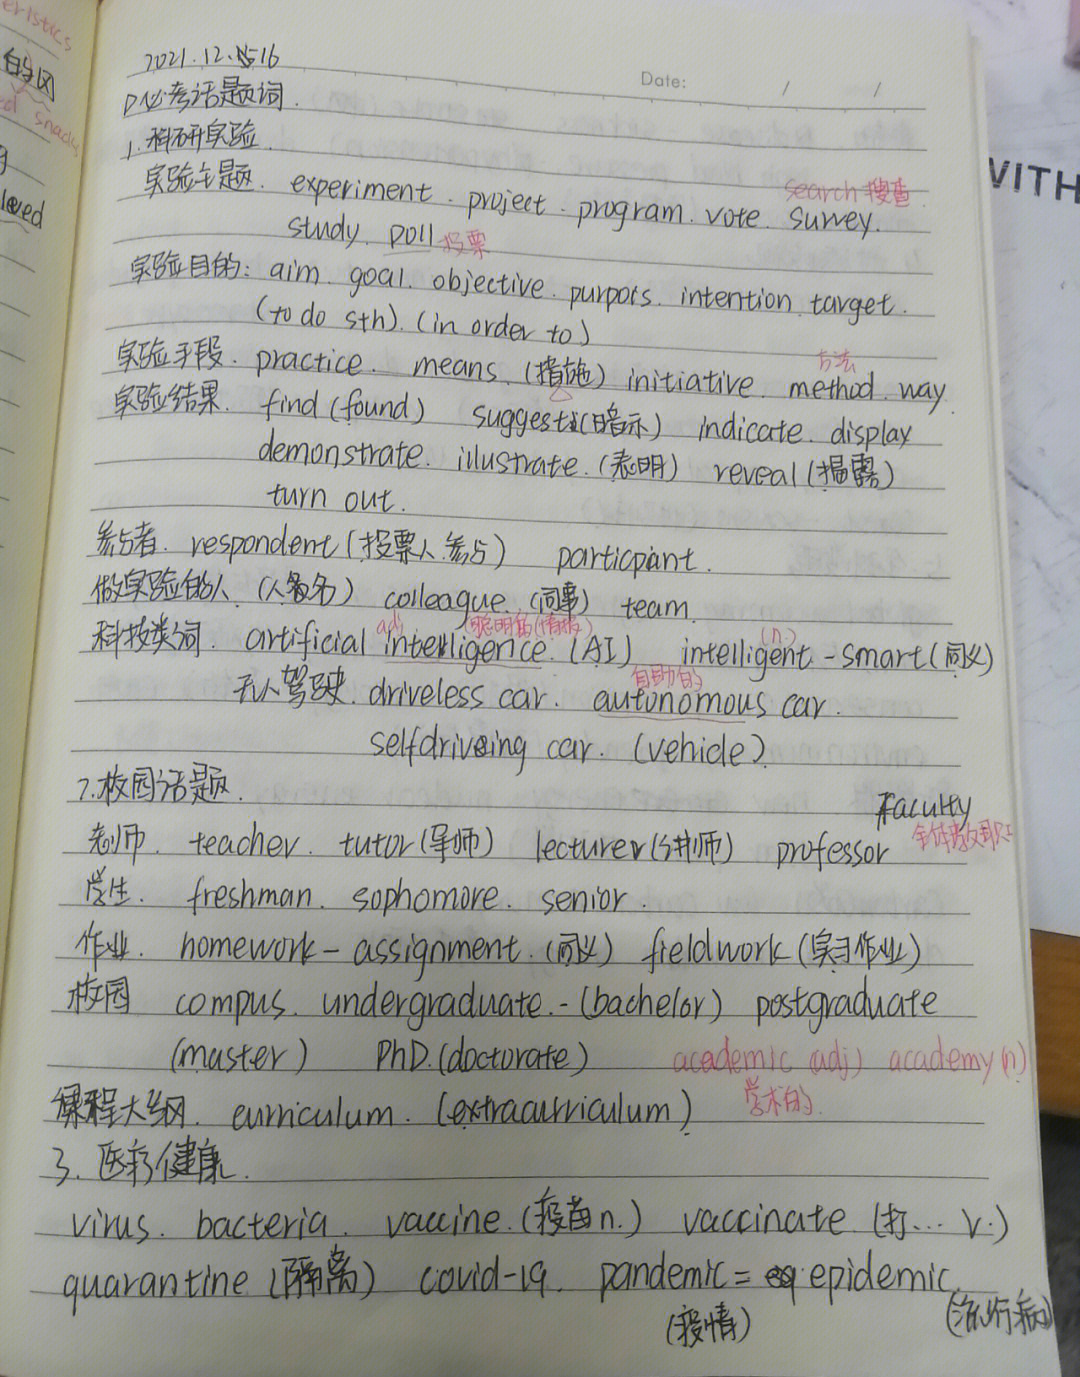 eristics
的风
ed snacks
loved
WITH
Date: / /
2021.12.16
必考话题词.
1.科研实验.
search 搜查.
实验主题. experiment. project. program. vote. survey.
study. poll 投票
实验目的: aim. goal. objective. purpots. intention. target.
(to do sth). (in order to)
方法
实验手段. practice. means. (措施) initiative. method. way.
实验结果. find (found) suggest (暗示) indicate. display
demonstrate. illustrate. (表明) reveal (揭露)
turn out.
参与者. respondent (投票人.参与) particpant.
做实验的人. (人名) colleague. (同事) team.
adj (聪明的(情报) (n.)
科技类词. artificial intelligence. (AI) intelligent - smart (同义)
自助的
无人驾驶. driveless car. autonomous car.
selfdriveing car. (vehicle).
2.校园话题.
Faculty
老师. teacher. tutor (导师) lecturer (讲师) professor 全体教职
学生. freshman. sophomore. senior
作业. homework - assignment. (同义) fieldwork (实习作业)
校园 compus. undergraduate. - (bachelor) postgraduate
(master) PhD. (doctorate) academic (adj) academy (n)
学术的.
课程大纲. curriculum. (extracurriculum)
3. 医疗健康.
virus. bacteria. vaccine. (疫苗n.) vaccinate. (打... v.)
quarantine (隔离) covid-19. pandemic = epidemic.
(疫情) (流行病)